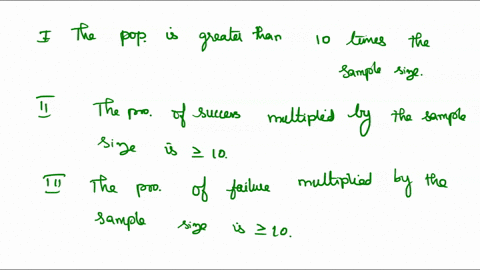 I The pop. is greater than 10 times the
sample size.
II The pro. of success multiplied by the sample
size is ≥ 10.
III The pro. of failure multiplied by the
sample size is ≥ 10.